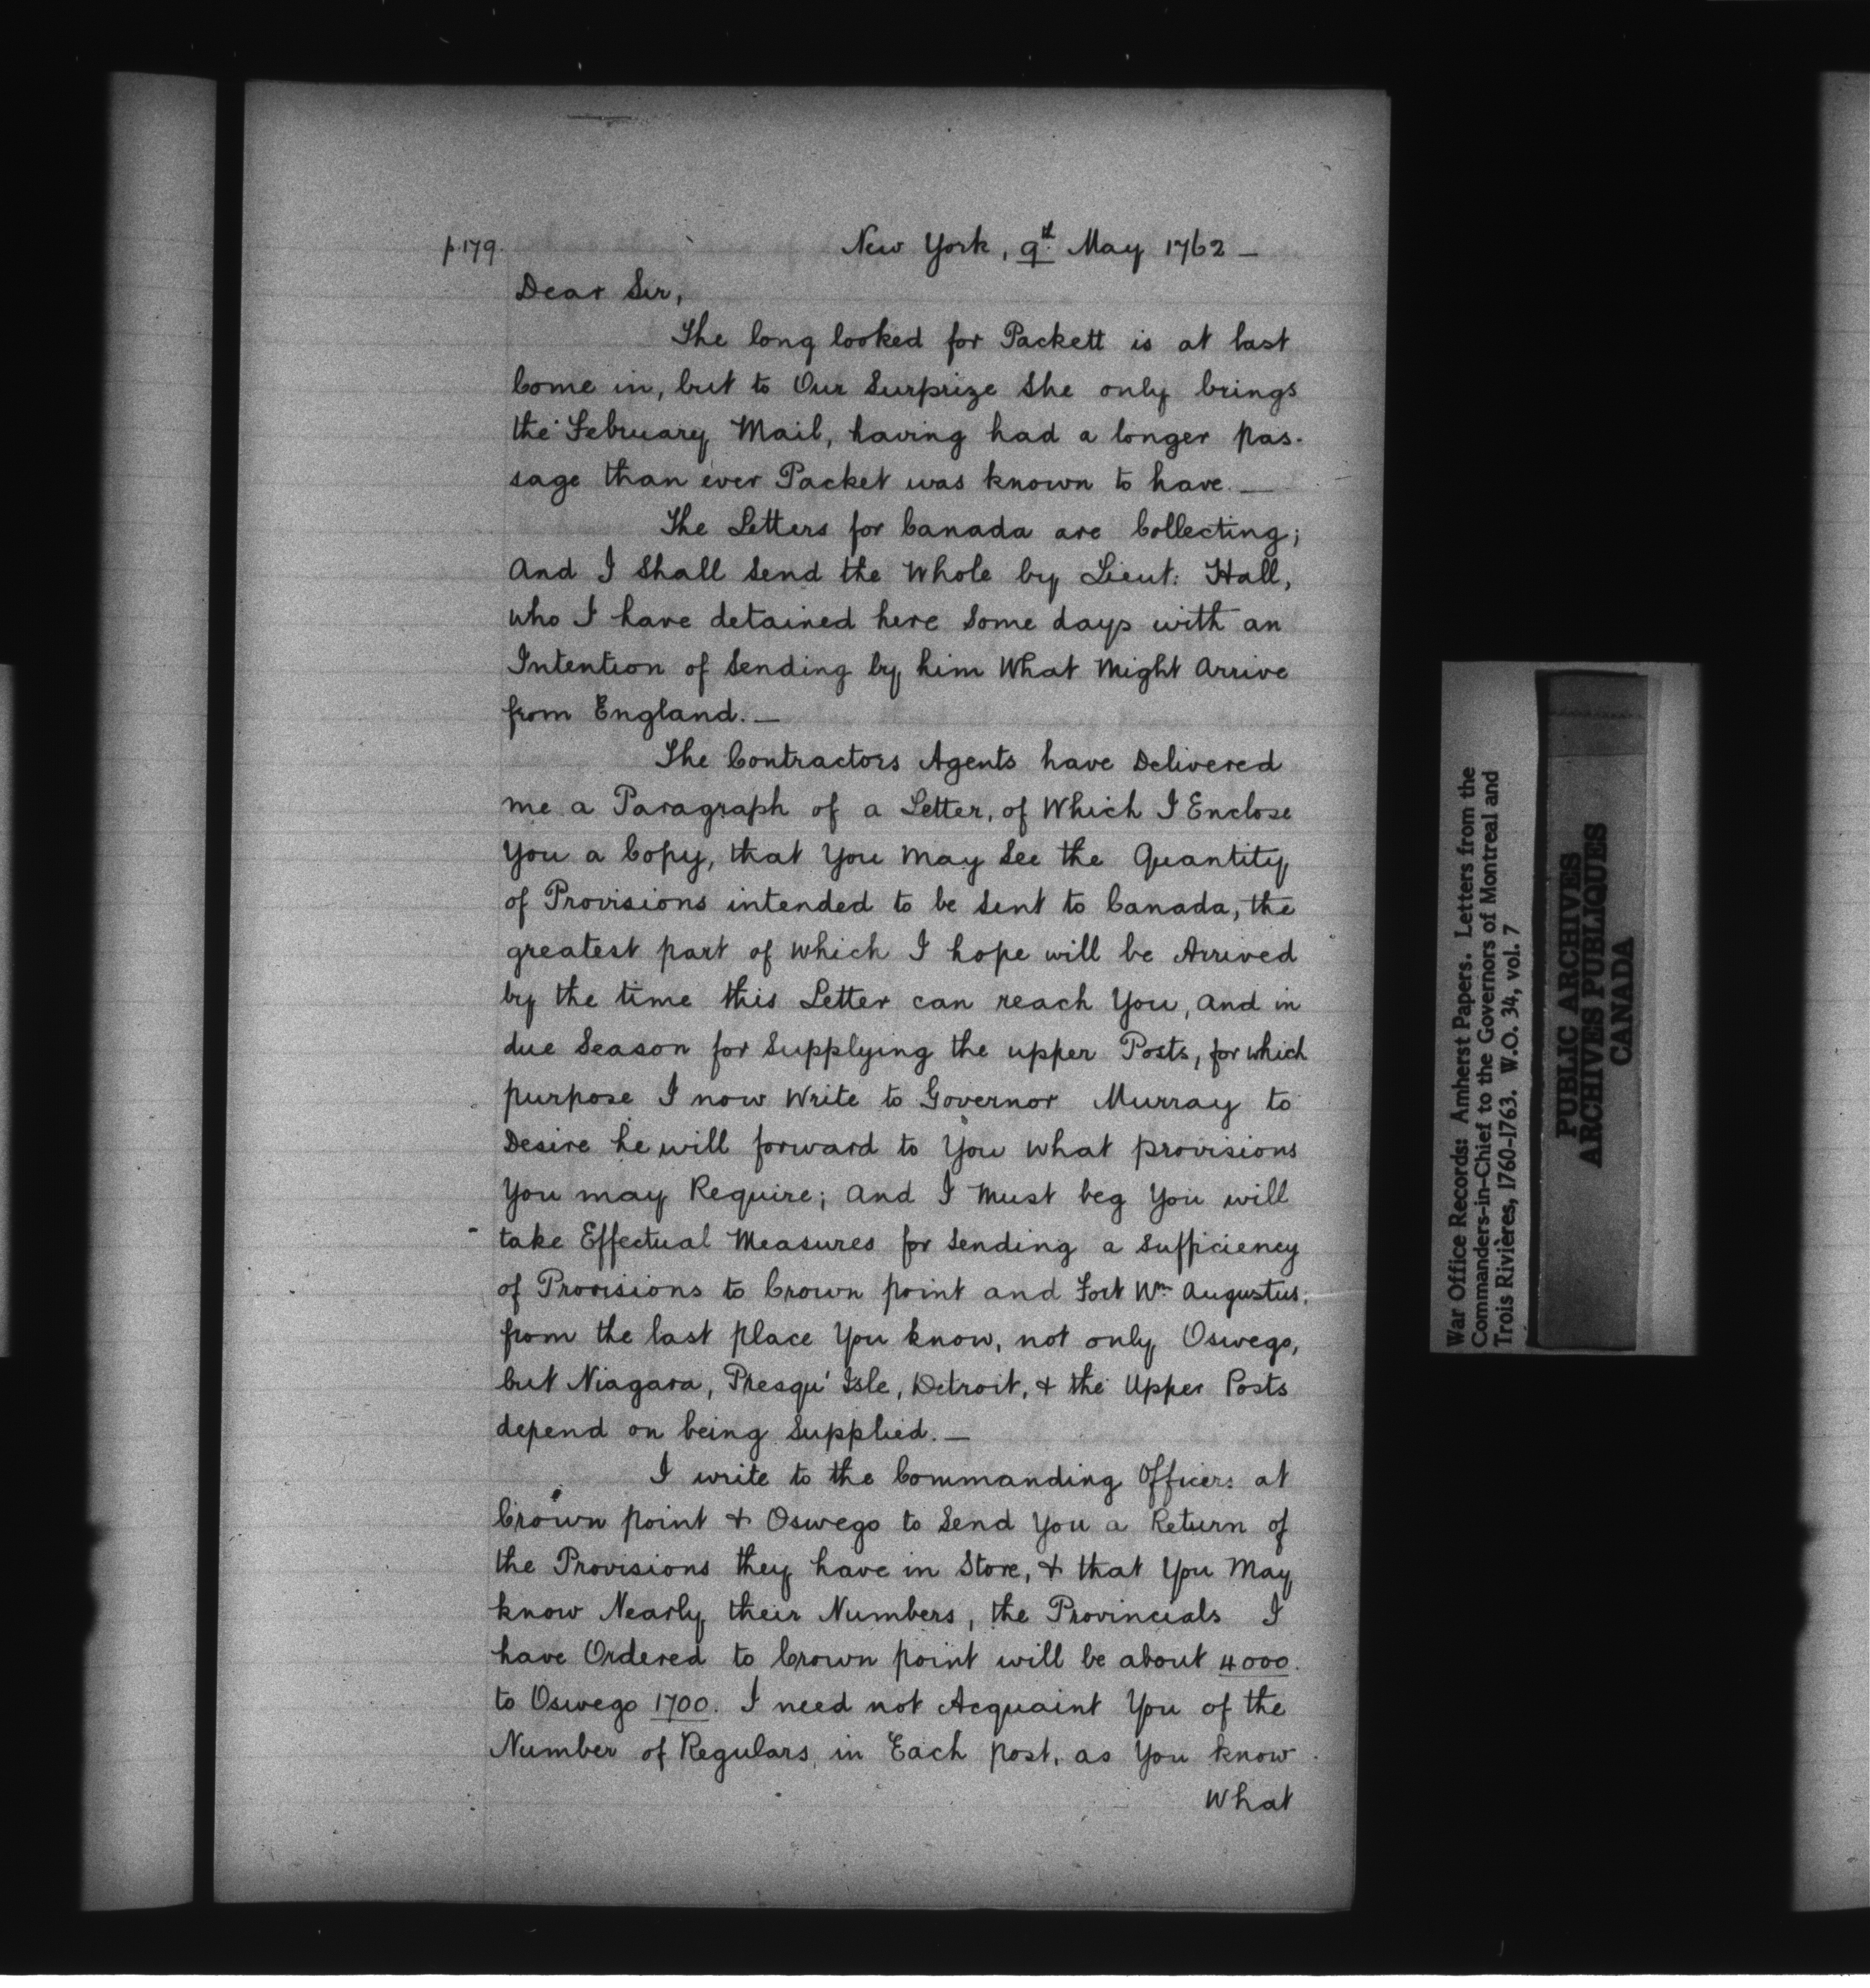 p.179.
New York, 9th May 1762 —
Dear Sir,
The long looked for Packett is at last
Come in, but to Our Surprize She only brings
the February Mail, having had a longer pas-
sage than ever Packet was known to have. —
The Letters for Canada are Collecting;
And I Shall Send the Whole by Lieut: Hall,
who I have detained here Some days with an
Intention of Sending by him What Might Arrive
from England. —
The Contractors Agents have Delivered
me a Paragraph of a Letter, of Which I Enclose
You a Copy, that You May See the Quantity
of Provisions intended to be Sent to Canada, the
greatest part of which I hope will be Arrived
by the time this Letter can reach You, and in
due Season for Supplying the upper Posts, for which
purpose I now Write to Governor Murray to
Desire he will forward to You what provisions
You may Require; and I Must beg You will
take Effectual Measures for Sending a Sufficiency
of Provisions to Crown point and Fort Wm Augustus;
from the last place You know, not only Oswego,
but Niagara, Presqu' Isle, Detroit, & the Upper Posts
depend on being Supplied. —
I write to the Commanding Officers at
Crown point & Oswego to Send You a Return of
the Provisions they have in Store, & that You May
know Nearly their Numbers, the Provincials I
have Ordered to Crown point will be about 4000.
to Oswego 1700. I need not Acquaint You of the
Number of Regulars in Each post, as You know
What
War Office Records: Amherst Papers. Letters from the
Commanders-in-Chief to the Governors of Montreal and
Trois Rivières, 1760-1763. W.O. 34, vol. 7
PUBLIC ARCHIVES
ARCHIVES PUBLIQUES
CANADA